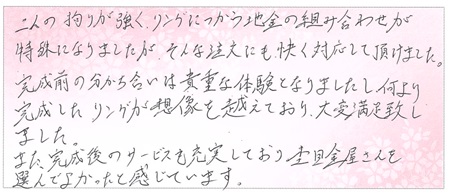 二人の拘りが強く、リングにつかう地金の組み合わせが
特殊になりましたが、そんな注文にも快く対応して頂けました。
完成前の分かち合いは貴重な体験となりましたし何より
完成したリングが想像を越えており、大変満足致し
ました。
また、完成後のサービスも充実しており杢目金屋さんを
選んでよかったと感じています。